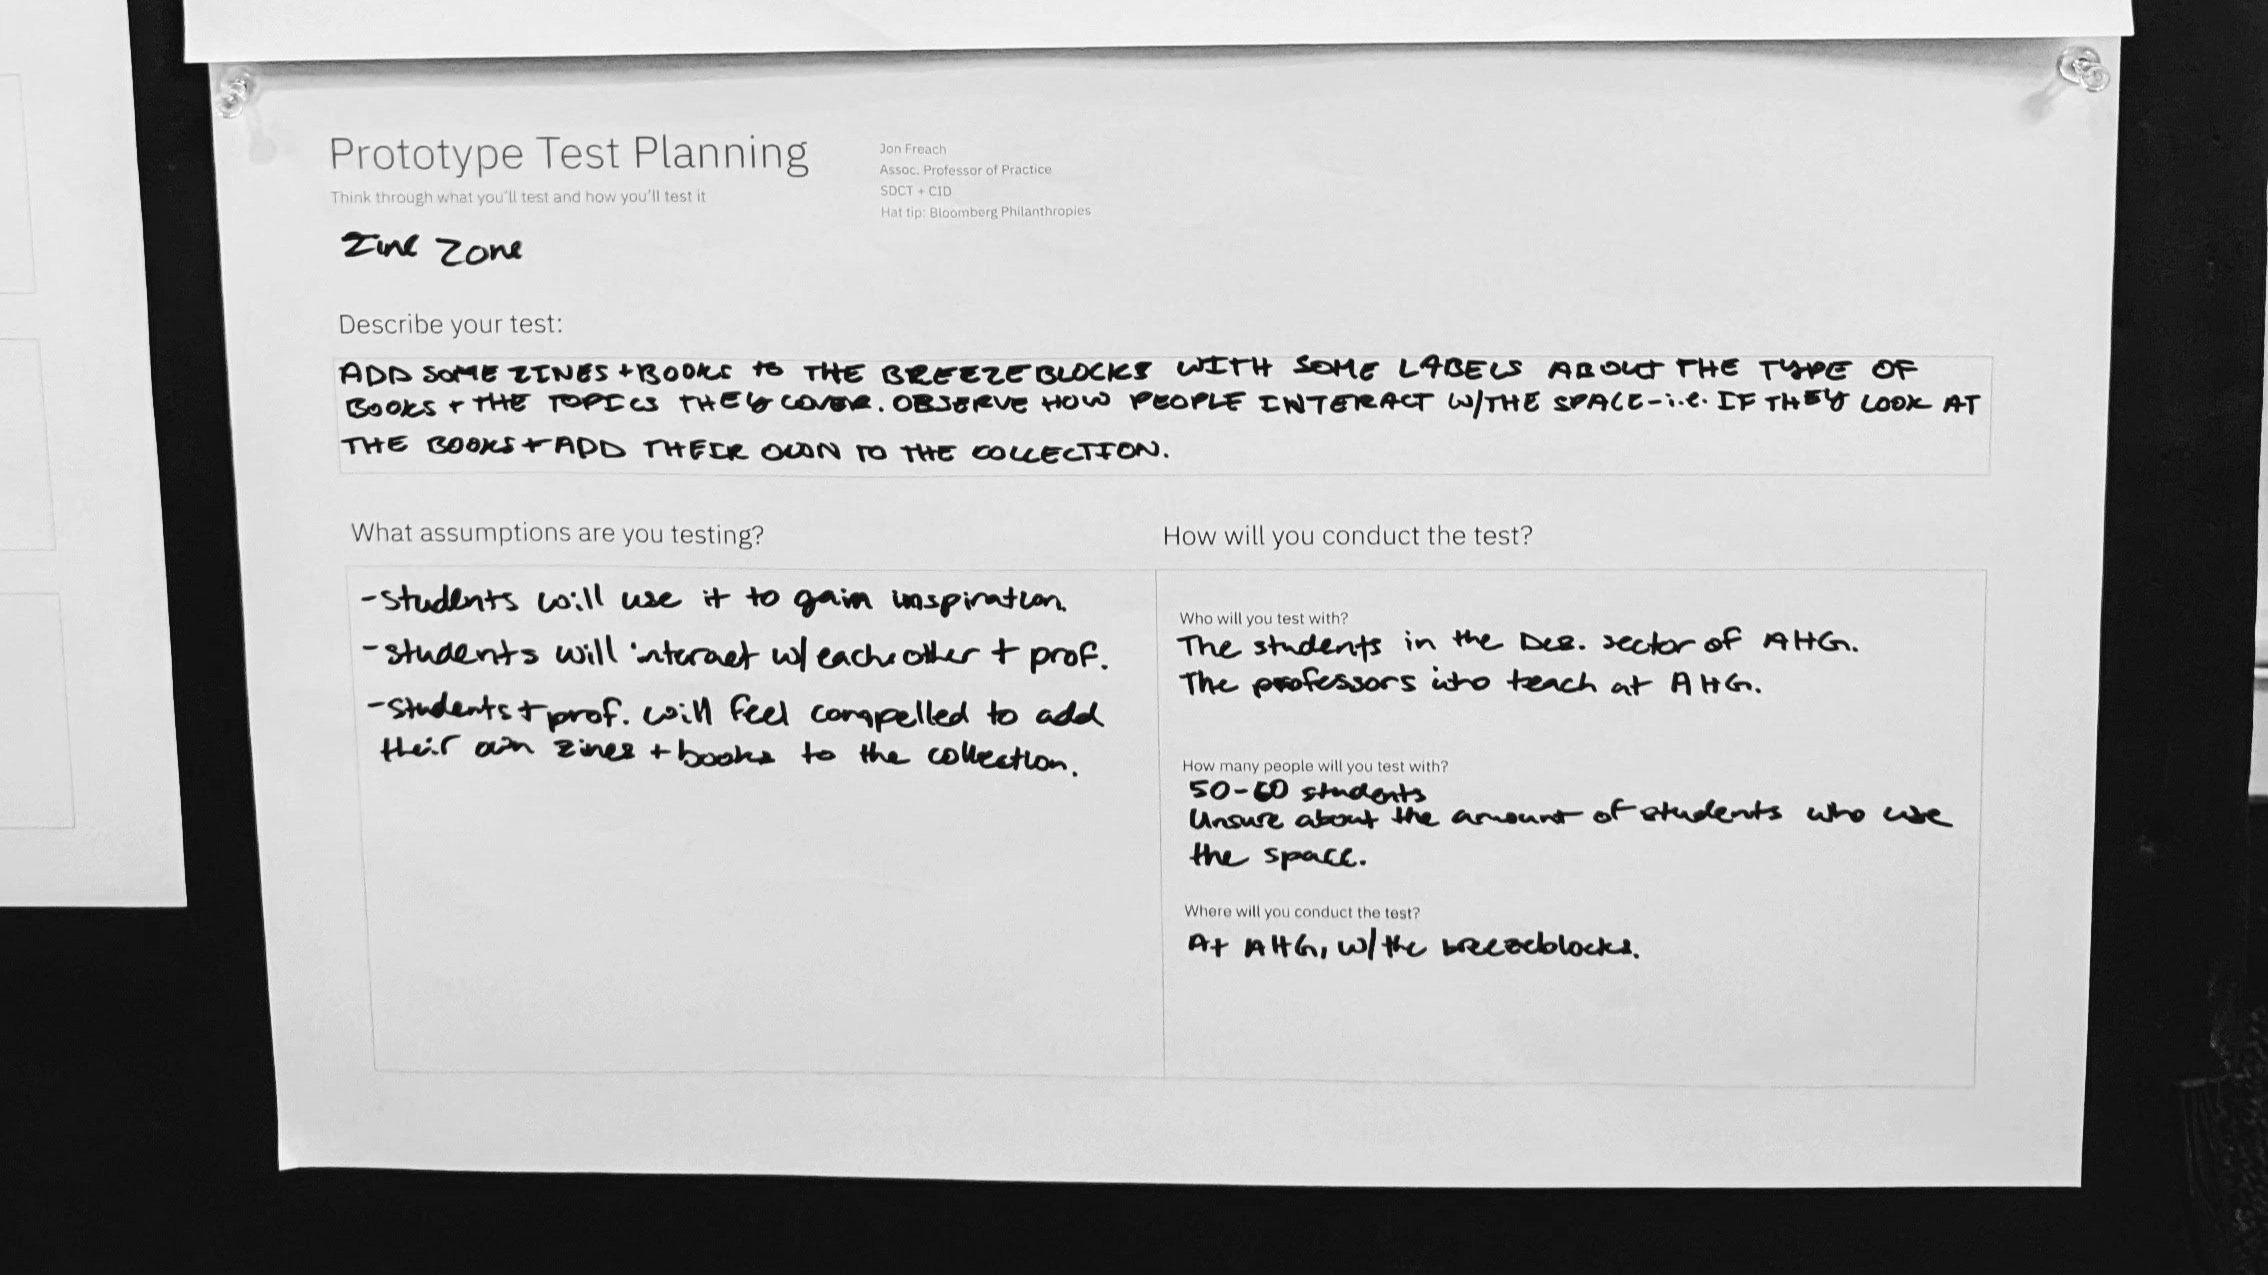 Prototype Test Planning
Think through what you'll test and how you'll test it
Jon Freach
Assoc. Professor of Practice
SDCT + CID
Hat tip: Bloomberg Philanthropies
Zine Zone
Describe your test:
ADD SOME ZINES + BOOKS to THE BREEZEBLOCKS WITH SOME LABELS ABOUT THE TYPE OF
BOOKS + THE TOPICS THEY COVER. OBSERVE HOW PEOPLE INTERACT W/THE SPACE-i.e. IF THEY LOOK AT
THE BOOKS + ADD THEIR OWN TO THE COLLECTION.
What assumptions are you testing?
-students will use it to gain inspiration.
-students will interact w/ each other + prof.
-students + prof. will feel compelled to add
their own zines + books to the collection.
How will you conduct the test?
Who will you test with?
The students in the Des. sector of AHG.
The professors who teach at AHG.
How many people will you test with?
50-60 students
Unsure about the amount of students who use
the space.
Where will you conduct the test?
At AHG, w/the breezeblocks.